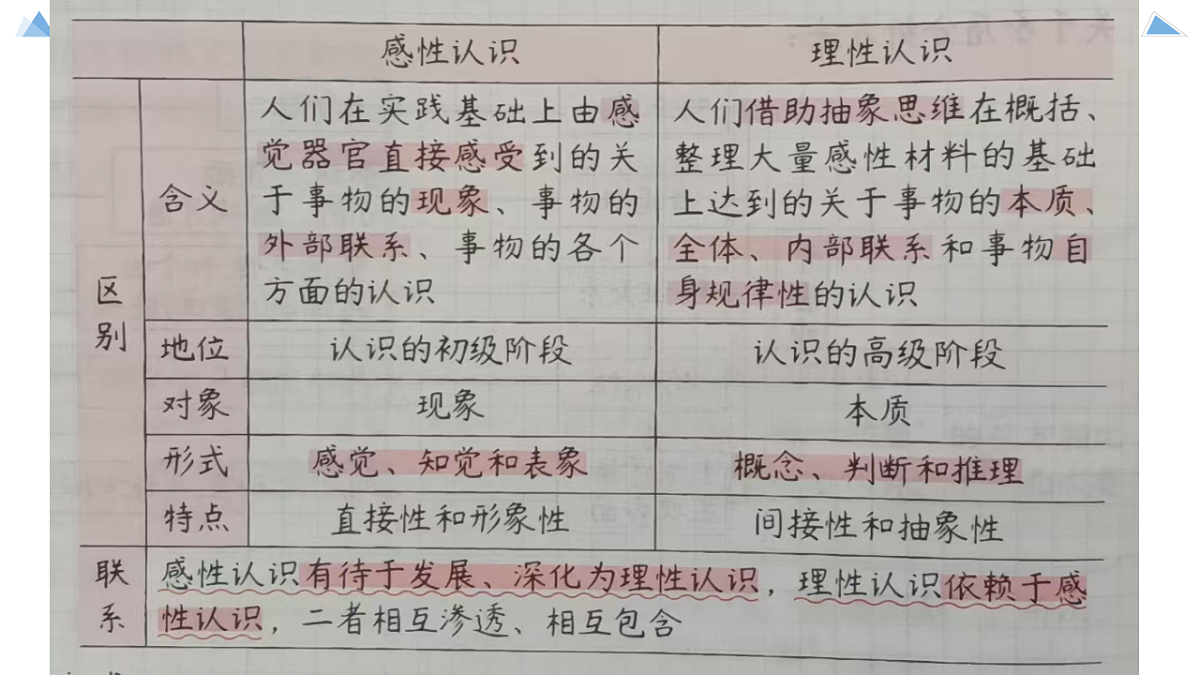 感性认识 理性认识
区别
含义
人们在实践基础上由感
觉器官直接感受到的关
于事物的现象、事物的
外部联系、事物的各个
方面的认识
人们借助抽象思维在概括、
整理大量感性材料的基础
上达到的关于事物的本质、
全体、内部联系和事物自
身规律性的认识
地位 认识的初级阶段 认识的高级阶段
对象 现象 本质
形式 感觉、知觉和表象 概念、判断和推理
特点 直接性和形象性 间接性和抽象性
联系
感性认识有待于发展、深化为理性认识，理性认识依赖于感
性认识，二者相互渗透、相互包含